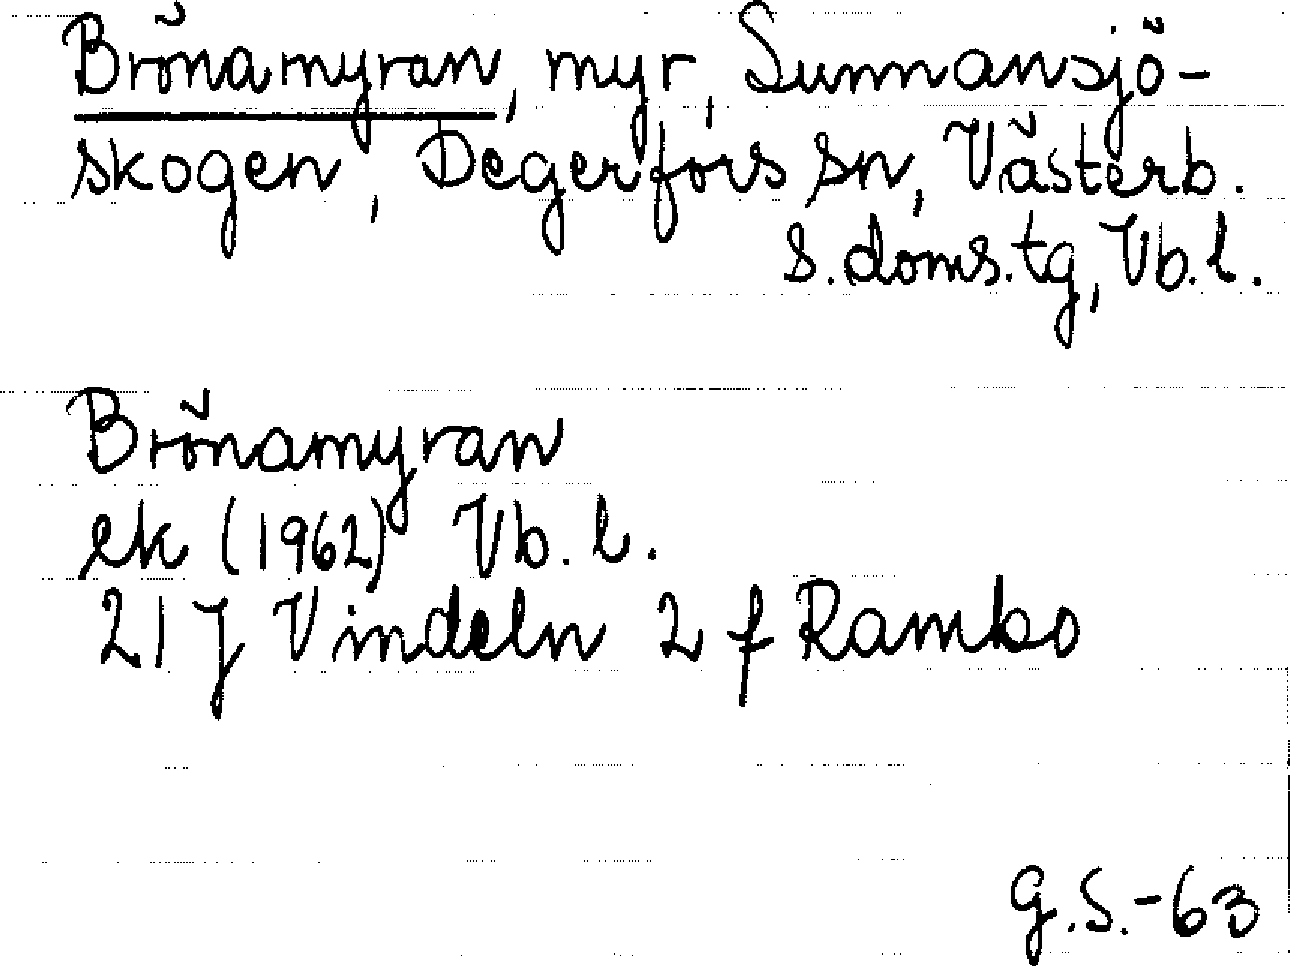 Brönamyran, myr, Sunnansjö-
skogen, Degerfors sn, Västerb.
s. doms.tg, Vb. l.
Brönamyran
ek (1962) Vb. l.
21 J Vindeln 2 f Rambo
G.S.-63